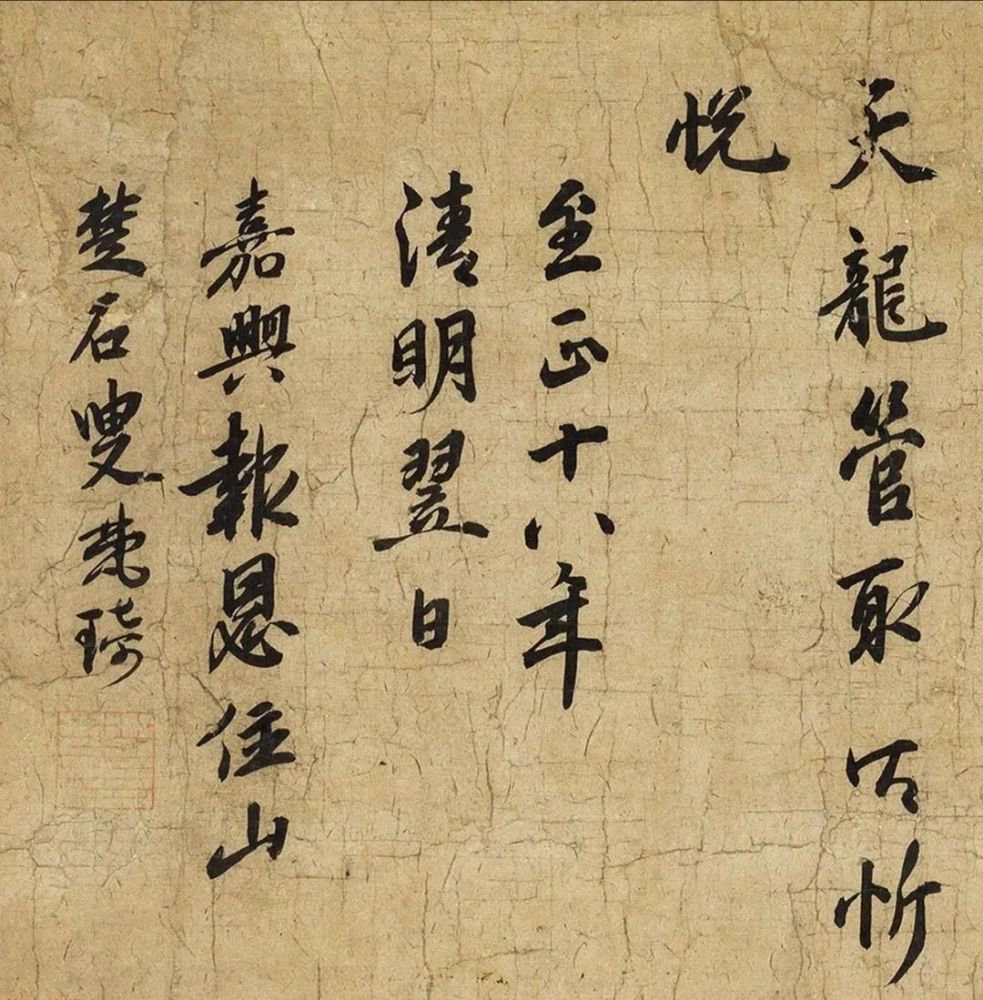 天龍管取忻
悅
至正十八年
清明翌日
嘉興報恩住山
楚石叟梵琦